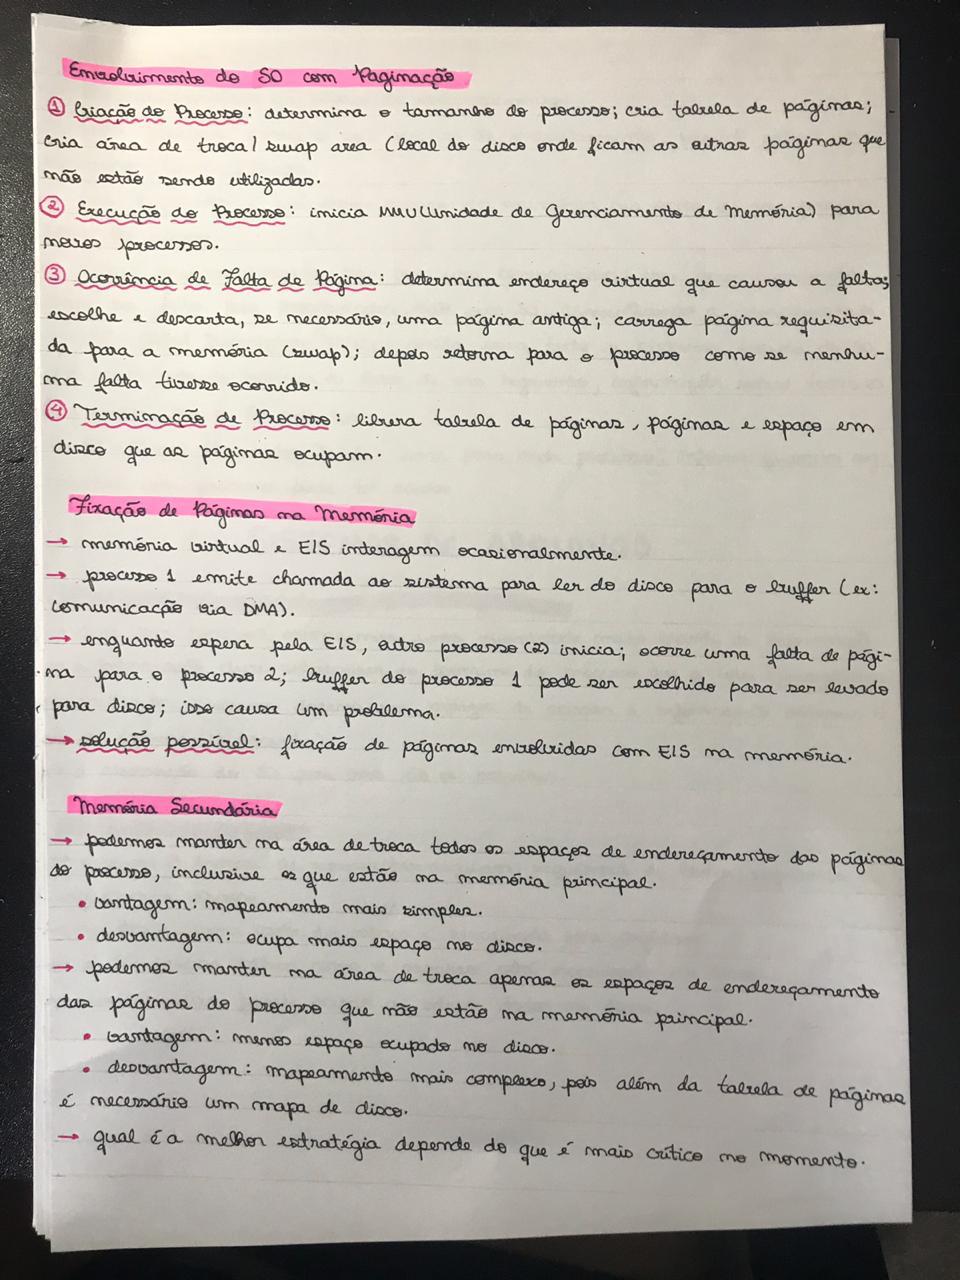 Envolvimento do SO com Paginação
① Criação do Processo: determina o tamanho do processo; cria tabela de páginas;
cria área de troca/swap area (local do disco onde ficam as outras páginas que
não estão sendo utilizadas.
② Execução do Processo: inicia MMU(Unidade de Gerenciamento de Memória) para
novos processos.
③ Ocorrência de Falta de Página: determina endereço virtual que causou a falta;
escolhe e descarta, se necessário, uma página antiga; carrega página requisita-
da para a memória (swap); depois retorna para o processo como se nenhu-
ma falta tivesse ocorrido.
④ Terminação de Processo: libera tabela de páginas, páginas e espaço em
disco que as páginas ocupam.
Fixação de Páginas na Memória
→ memória virtual e E/S interagem ocasionalmente.
→ processo 1 emite chamada ao sistema para ler do disco para o buffer (ex:
comunicação via DMA).
→ enquanto espera pela E/S, outro processo (2) inicia; ocorre uma falta de pági-
na para o processo 2; buffer do processo 1 pode ser escolhido para ser levado
para disco; isso causa um problema.
→ solução possível: fixação de páginas envolvidas com E/S na memória.
Memória Secundária
→ podemos manter na área de troca todos os espaços de endereçamento das páginas
do processo, inclusive os que estão na memória principal.
• vantagem: mapeamento mais simples.
• desvantagem: ocupa mais espaço no disco.
→ podemos manter na área de troca apenas os espaços de endereçamento
das páginas do processo que não estão na memória principal.
• vantagem: menos espaço ocupado no disco.
• desvantagem: mapeamento mais complexo, pois além da tabela de páginas
é necessário um mapa de disco.
→ qual é a melhor estratégia depende do que é mais crítico no momento.